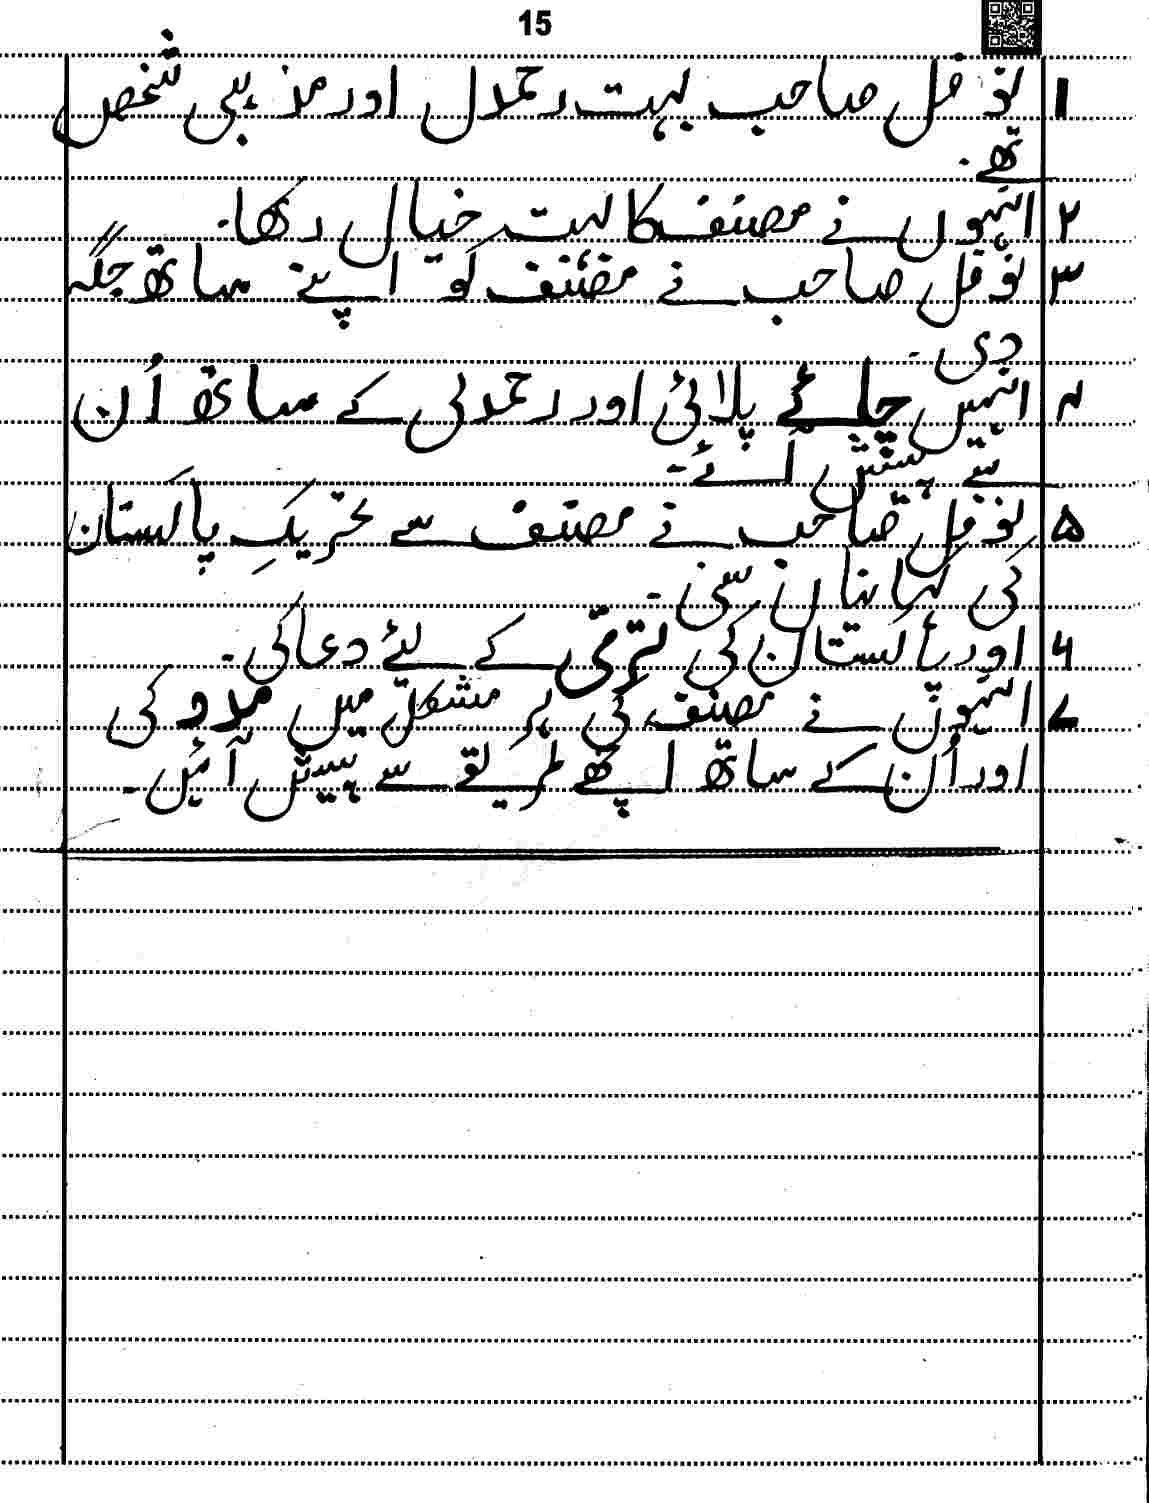 15
1 نوفل صاحب بہت رحمدل اور مذہبی شخص
تھے۔
۲ انہوں نے مصنف کا بہت خیال رکھا۔
۳ نوفل صاحب نے مصنف کو اپنے ساتھ جگہ
دی۔
۴ انہیں چائے پلائی اور رحمدلی کے ساتھ اُن
سے پیش آئے۔
۵ نوفل صاحب نے مصنف سے تحریکِ پاکستان
کی کہانیاں سنی۔
۶ اور پاکستان کی ترقی کے لیئے دعا کی۔
۷ انہوں نے مصنف کی ہر مشکل میں مدد کی
اور اُن کے ساتھ اچھے طریقے سے پیش آئیں۔